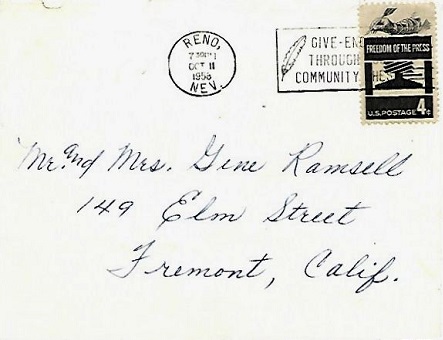 RENO,
OCT 11
1958
NEV.
GIVE-
THROUGH
COMMUNITY
FREEDOM OF THE PRESS
U.S. POSTAGE 4¢
Mr. and Mrs. Gene Ramsell
149 Elm Street
Fremont, Calif.